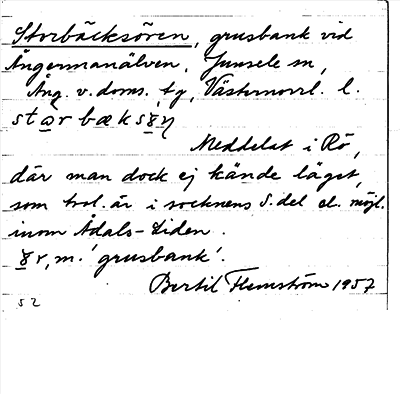 Storbäcksören, grusbank vid
Ångermanälven, Junsele sn,
Ång. v. doms. tg, Västernorrl. l.
Meddelat i Rö,
där man dock ej kände läget,
som trol. är i socknens S. del el. möjl.
inom Ådals-Liden.
ör, m. 'grusbank'.
Bertil Flemström 1957
52